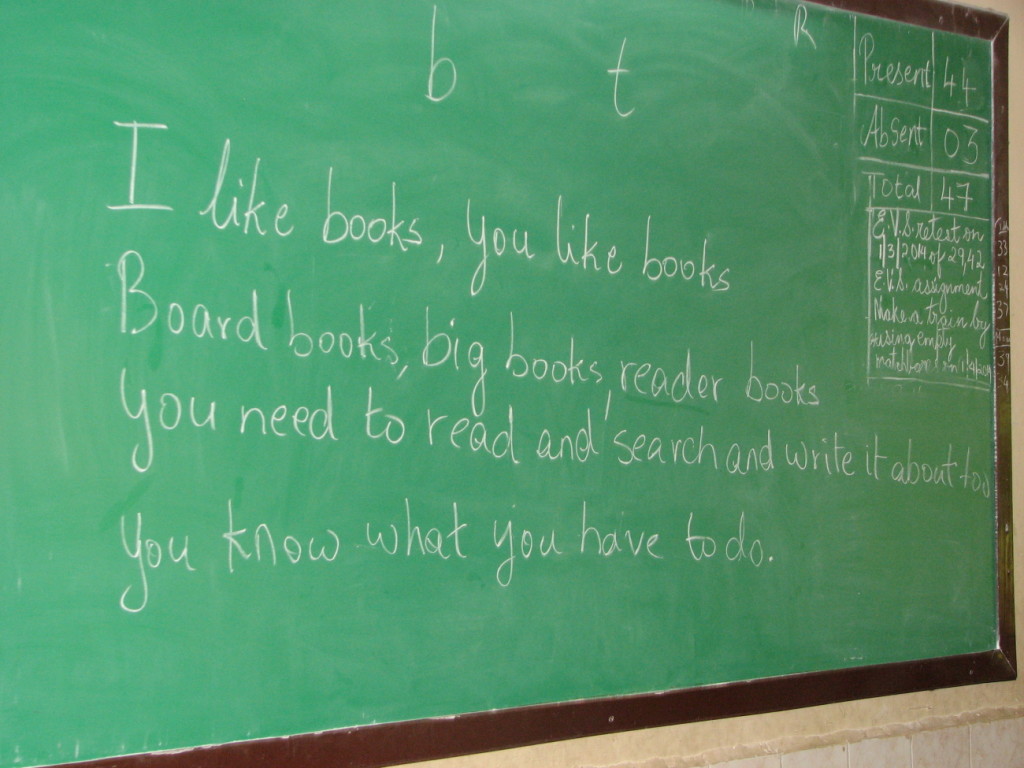 b t R
I like books, you like books
Board books, big books, reader books
you need to read and search and write it about too
you know what you have to do.
Present 44
Absent 03
Total 47
E.V.S. retest on
1/3/2014 of 29,42
E.V.S. assignment
Make a train by
using empty
matchbox on